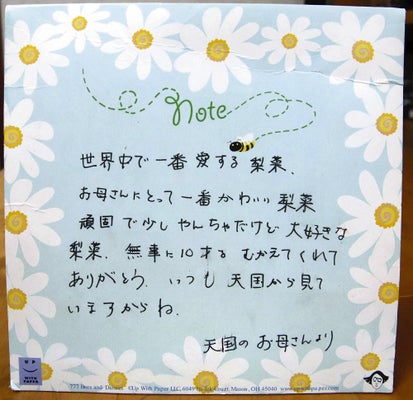 note
世界中で一番愛する梨薬、
お母さんにとって一番かわいい梨薬
頑固で少しやんちゃだけど大好きな
梨薬。無事に10才をむかえてくれて
ありがとう。いつも天国から見て
いますからね。
天国のお母さんより
UP
WITH PAPER
777 Bees and Daisies ©Up With Paper LLC, 6049 Mason, OH 45040